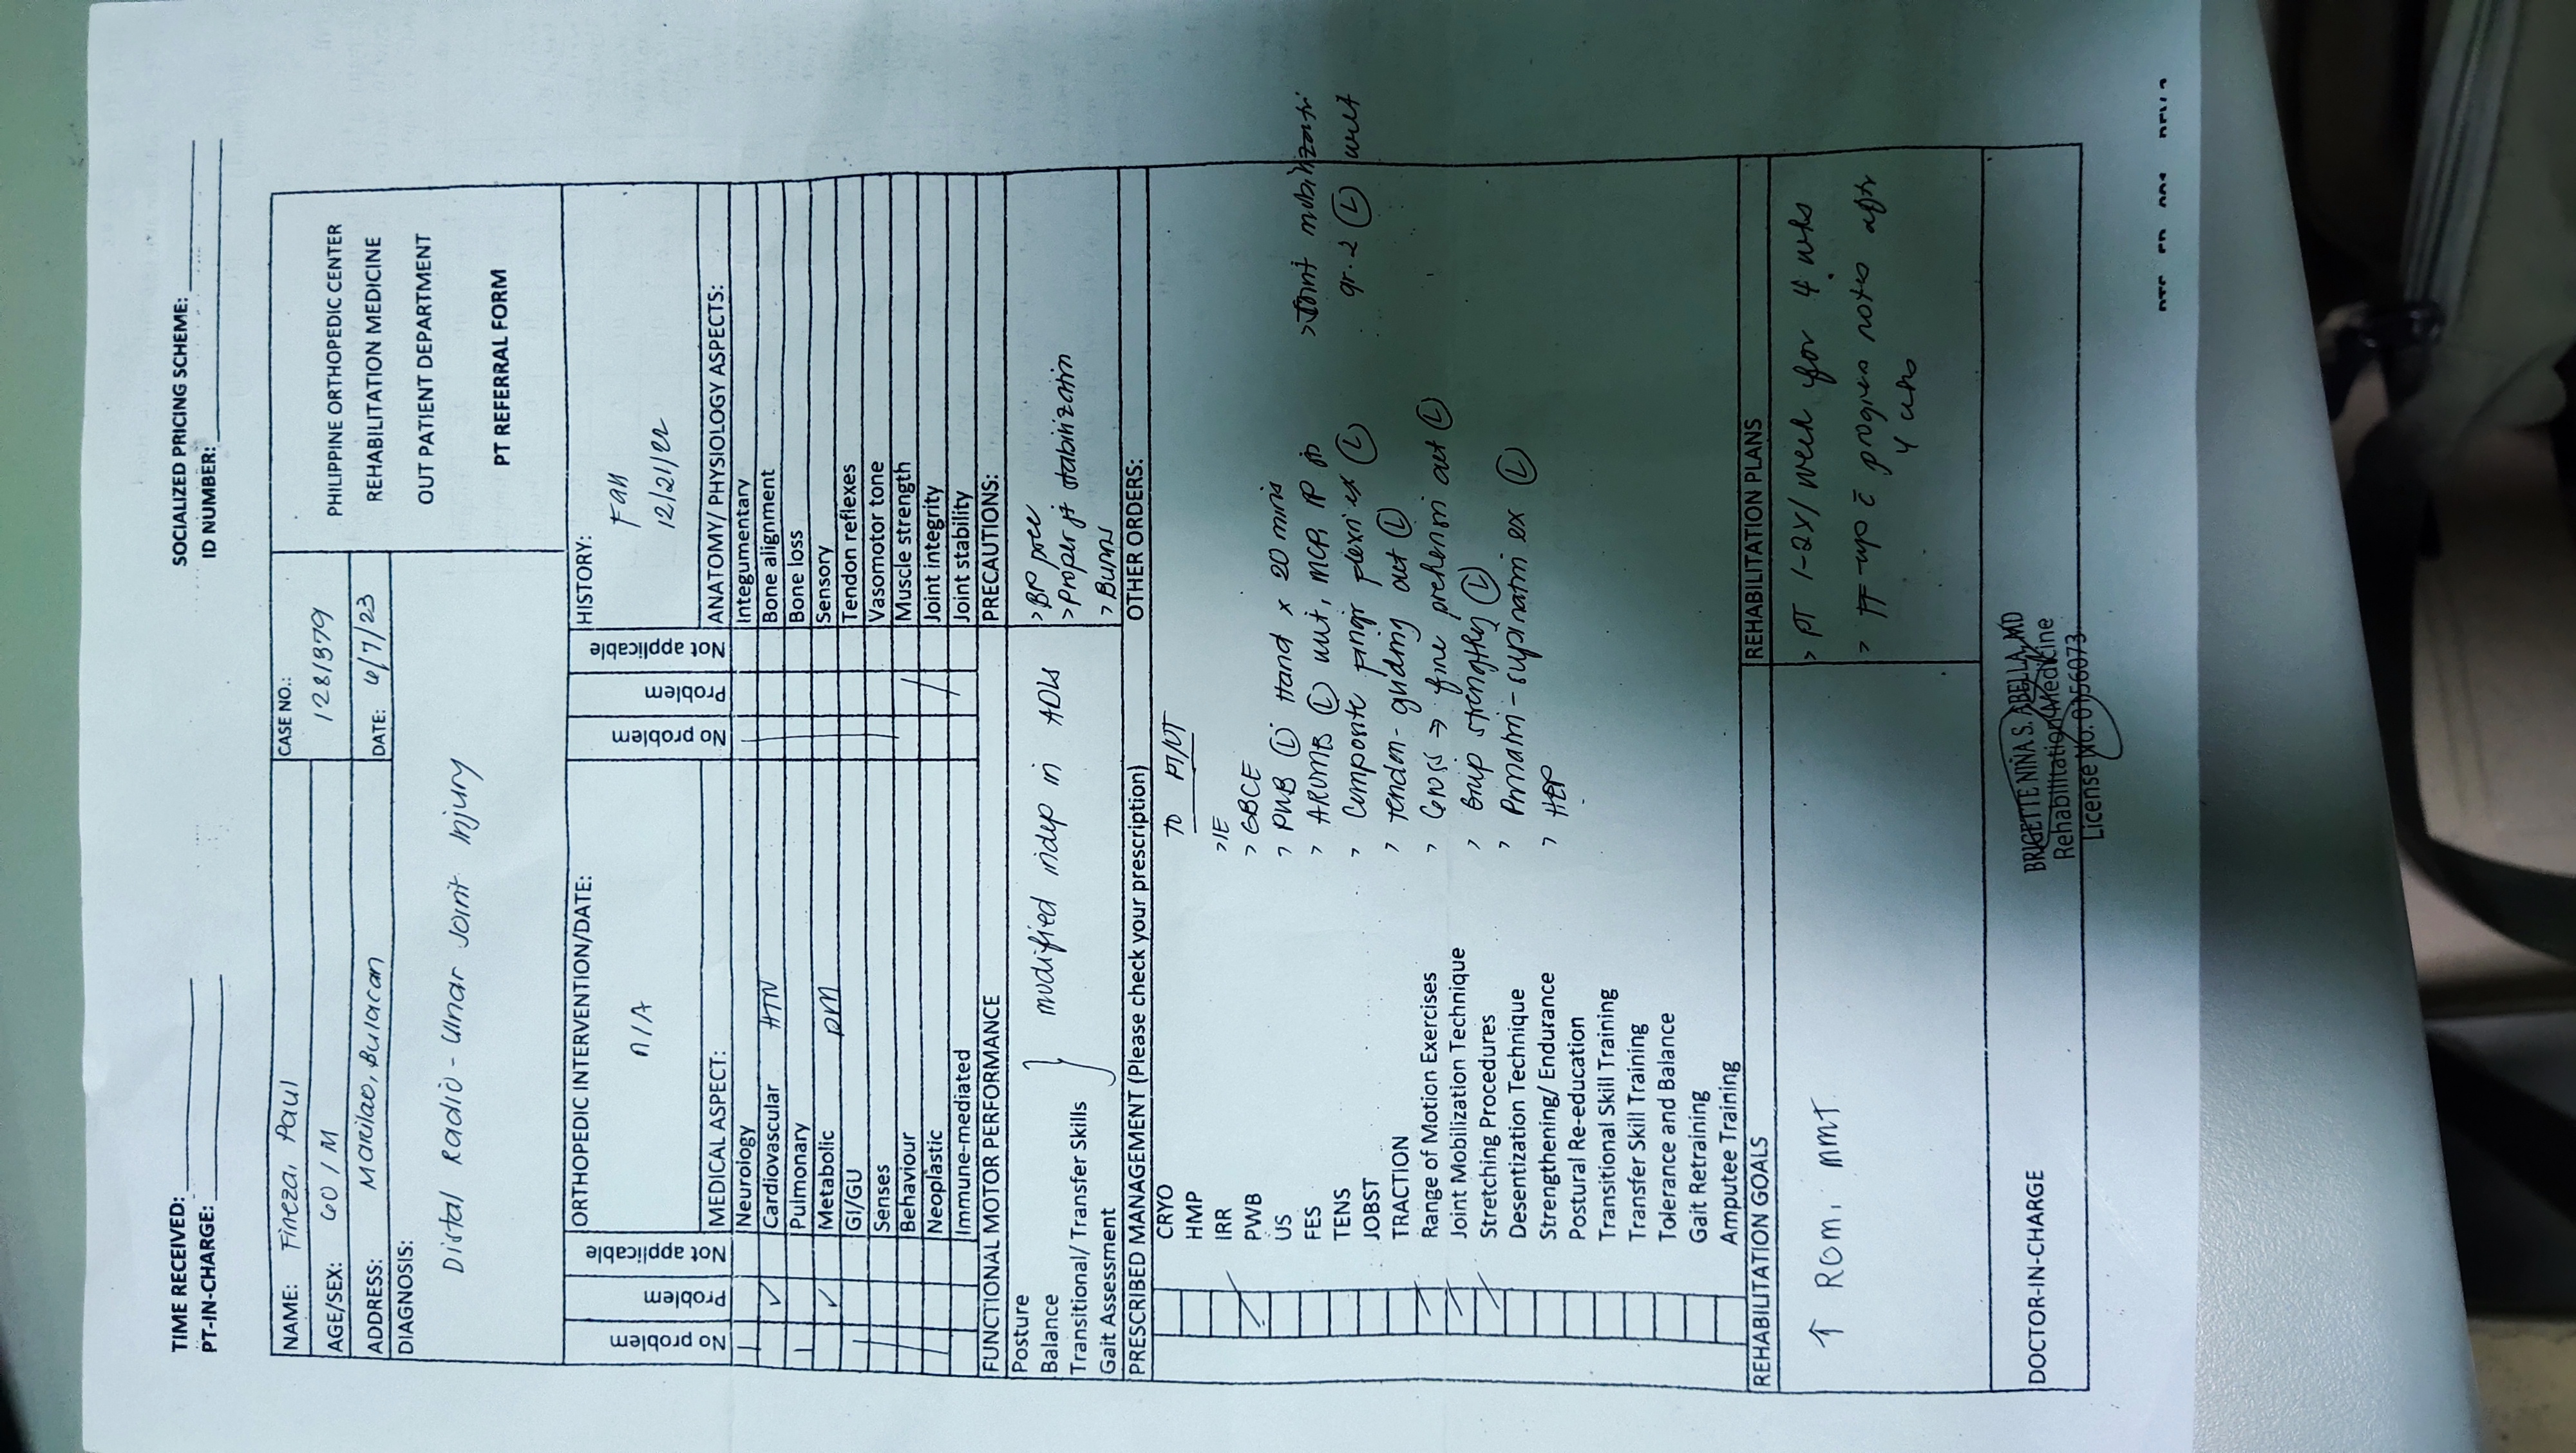 TIME RECEIVED:
PT-IN-CHARGE:
SOCIALIZED PRICING SCHEME:
ID NUMBER:
NAME: Fineza, Paul
CASE NO.:
1281979
PHILIPPINE ORTHOPEDIC CENTER
REHABILITATION MEDICINE
OUT PATIENT DEPARTMENT
PT REFERRAL FORM
AGE/SEX: 60 / M
ADDRESS: Marilao, Bulacan
DATE: 6/7/23
DIAGNOSIS:
Distal Radio-Ulnar Joint Injury
ORTHOPEDIC INTERVENTION/DATE:
N/A
HISTORY:
Fall
12/21/22
No problem
Problem
Not applicable
MEDICAL ASPECT:
Neurology
Cardiovascular HTN
Pulmonary
Metabolic DM
GI/GU
Senses
Behaviour
Neoplastic
Immune-mediated
No problem
Problem
Not applicable
ANATOMY/ PHYSIOLOGY ASPECTS:
Integumentary
Bone alignment
Bone loss
Sensory
Tendon reflexes
Vasomotor tone
Muscle strength
Joint integrity
Joint stability
FUNCTIONAL MOTOR PERFORMANCE
Posture
Balance
Transitional/ Transfer Skills
Gait Assessment
} modified indep in ADLs
PRECAUTIONS:
> BP prec
> Proper jt stabilization
> Burns
PRESCRIBED MANAGEMENT (Please check your prescription)
CRYO
HMP
IRR
PWB
US
FES
TENS
JOBST
TRACTION
Range of Motion Exercises
Joint Mobilization Technique
Stretching Procedures
Desentization Technique
Strengthening/ Endurance
Postural Re-education
Transitional Skill Training
Transfer Skill Training
Tolerance and Balance
Gait Retraining
Amputee Training
OTHER ORDERS:
TO PT/OT
> IE
> GBCE
> PWB (L) Hand x 20 mins
> AROMB (L) MCP, IP
> Composite finger flexn ex (L)
> Tendon-gliding (L)
> Gross → fine prehensn (L)
> Grip (L)
> Pronatn-supinatn ex (L)
> HEP
> Joint mobilizatn
gr. 2 (L)
REHABILITATION GOALS
↑ ROM, MMT
REHABILITATION PLANS
> PT 1-2x/week for 4 wks
> FF-up c̄ progress notes aftr
4 wks
DOCTOR-IN-CHARGE
BRIGETTE NIÑA S. ABELLA, MD
Rehabilitation Medicine
License No. 0156073